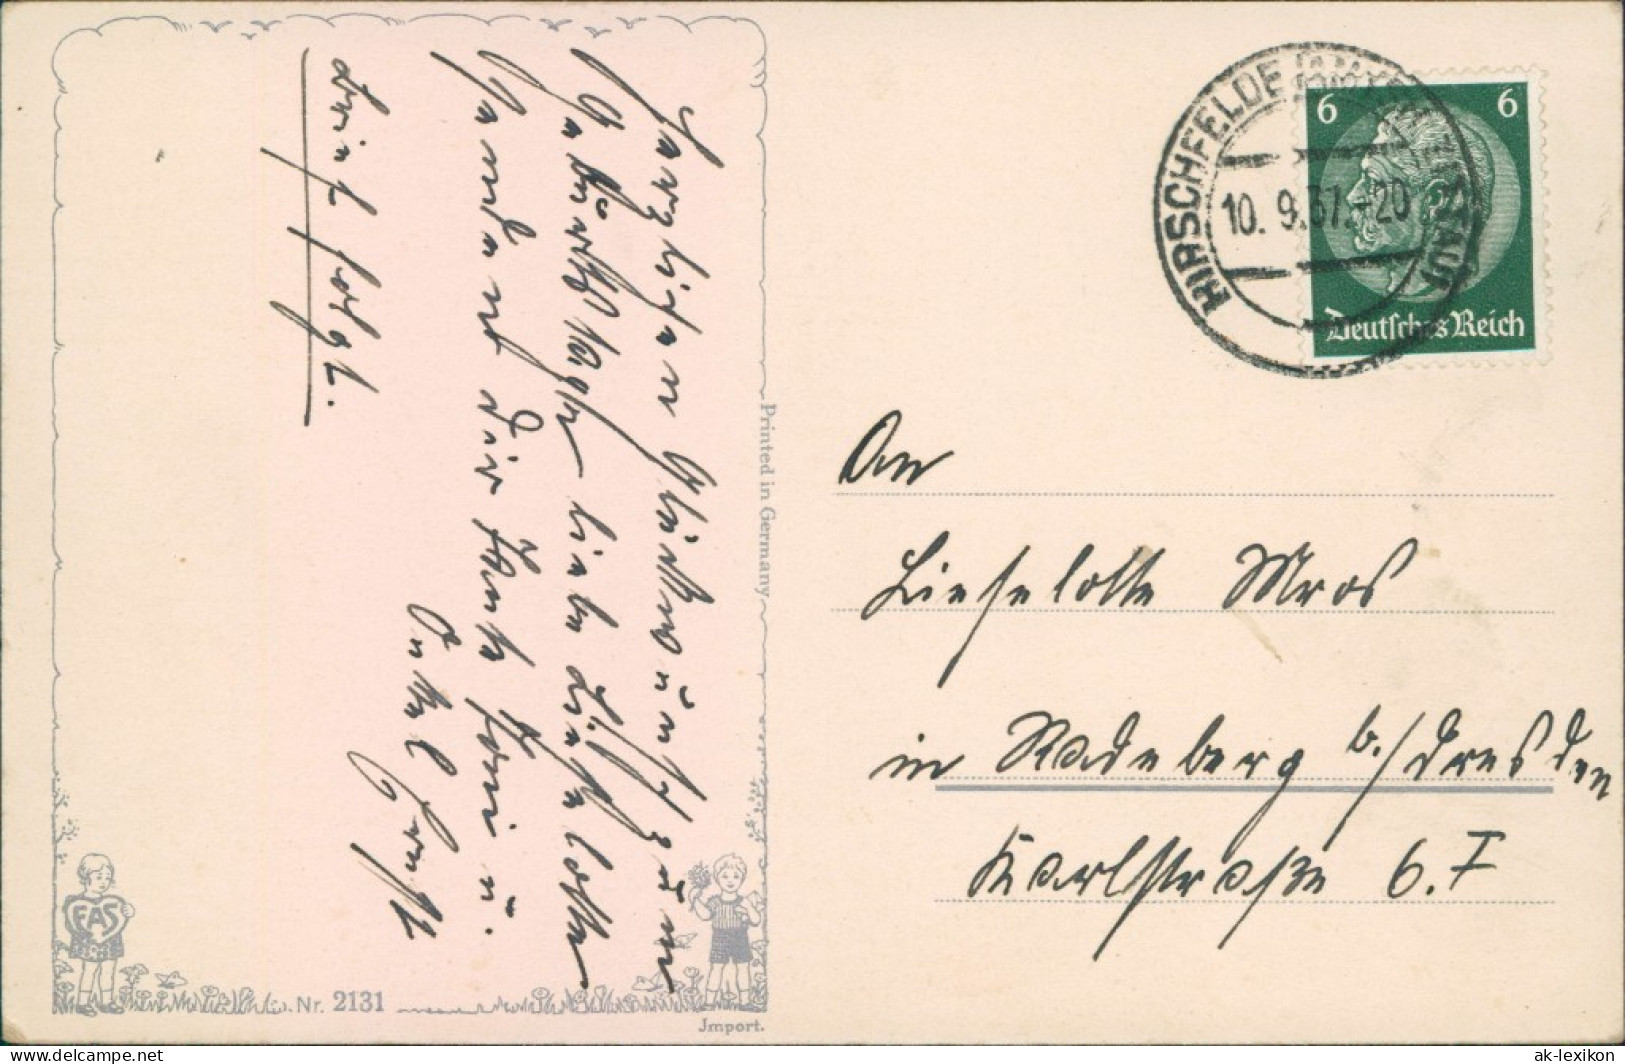 Herzlichen Glückwunsch zum
Geburtstage liebe Lieselotte
senden Dir Tante Toni u.
Onkel Horst
Brief folgt.
Printed in Germany
FAS
Nr. 2131
Jmport.
HIRSCHFELDE
10. 9.37.-20
6 6
Deutsches Reich
An
Lieselotte Mros
in Radeberg b./Dresden
Karlstraße 6. I
www.delcampe.net
ak-lexikon